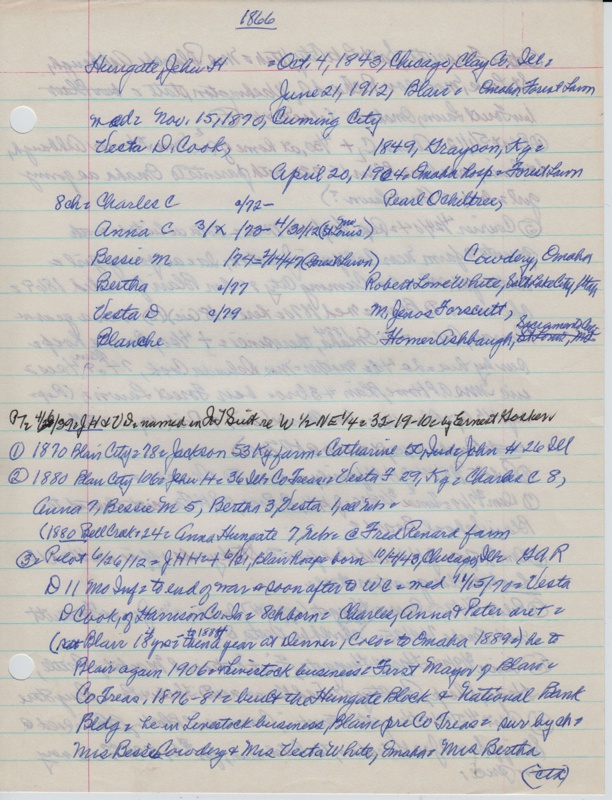 1866
Hungate, John H = Oct. 4, 1843, Chicago, Clay Co. Ill =
June 21, 1912, Blair = Omaha, Forest Lawn
md = Nov. 15, 1870, Cuming City
Vesta D. Cook, 1849, Grayson, Ky =
April 20, 1904 = Omaha Hosp = Forest Lawn
8ch = Charles C 2/72 — Pearl Ochiltree,
Anna C 3/X /70 - 4/30/12 (St Louis)
Bessie M /74 = 7/14/47 (Forest Lawn) Cowdery, Omaha
Bertha /77 Robert Lowe White, Salt Lake City, Utah
Vesta D 2/79 M. Jenos Forscutt,
Blanche Homer Ashbaugh, Sacramento, Cal
= J H & V D = named in Suit re W 1/2 - NE 1/4 = 32-19-10 = by Ernest
① 1870 Blair City = 78 = Jackson 53 Ky farm = Catharine 50, Ind = John H 26 Ill
② 1880 Blair City 106 = John H = 36 Ill = Co Treas = Vesta F 29, Ky = Charles C 8,
Anna 7, Bessie M 5, Bertha 3, Vesta 1, all Neb =
(1880 Bell Creek = 24 = Anna Hungate 7, Neb = @ Fred Renard farm
③ = Pilot 6/26/12 = J H H = + 6/21, Blair Hosp = born 10/4/43, Chicago, Ill = GAR
D 11 Mo Inf = to end of war & soon after to W C = med 11/15/70 = Vesta
D Cook, of Harrison Co. Ia = 8ch born = Charles, Anna & Peter are + =
Blair 18 yrs = to 1888 = third year at Denver, Colo = to Omaha 1889 =) he to
Blair again 1906 = Livestock business = First Mayor of Blair =
Co Treas, 1876-81 = built the Hungate Block & National Bank
Bldg = he in Livestock business, Blair pre Co Treas = sur by ch =
Mrs Bessie Cowdery & Mrs Vesta White, Omaha = Mrs Bertha